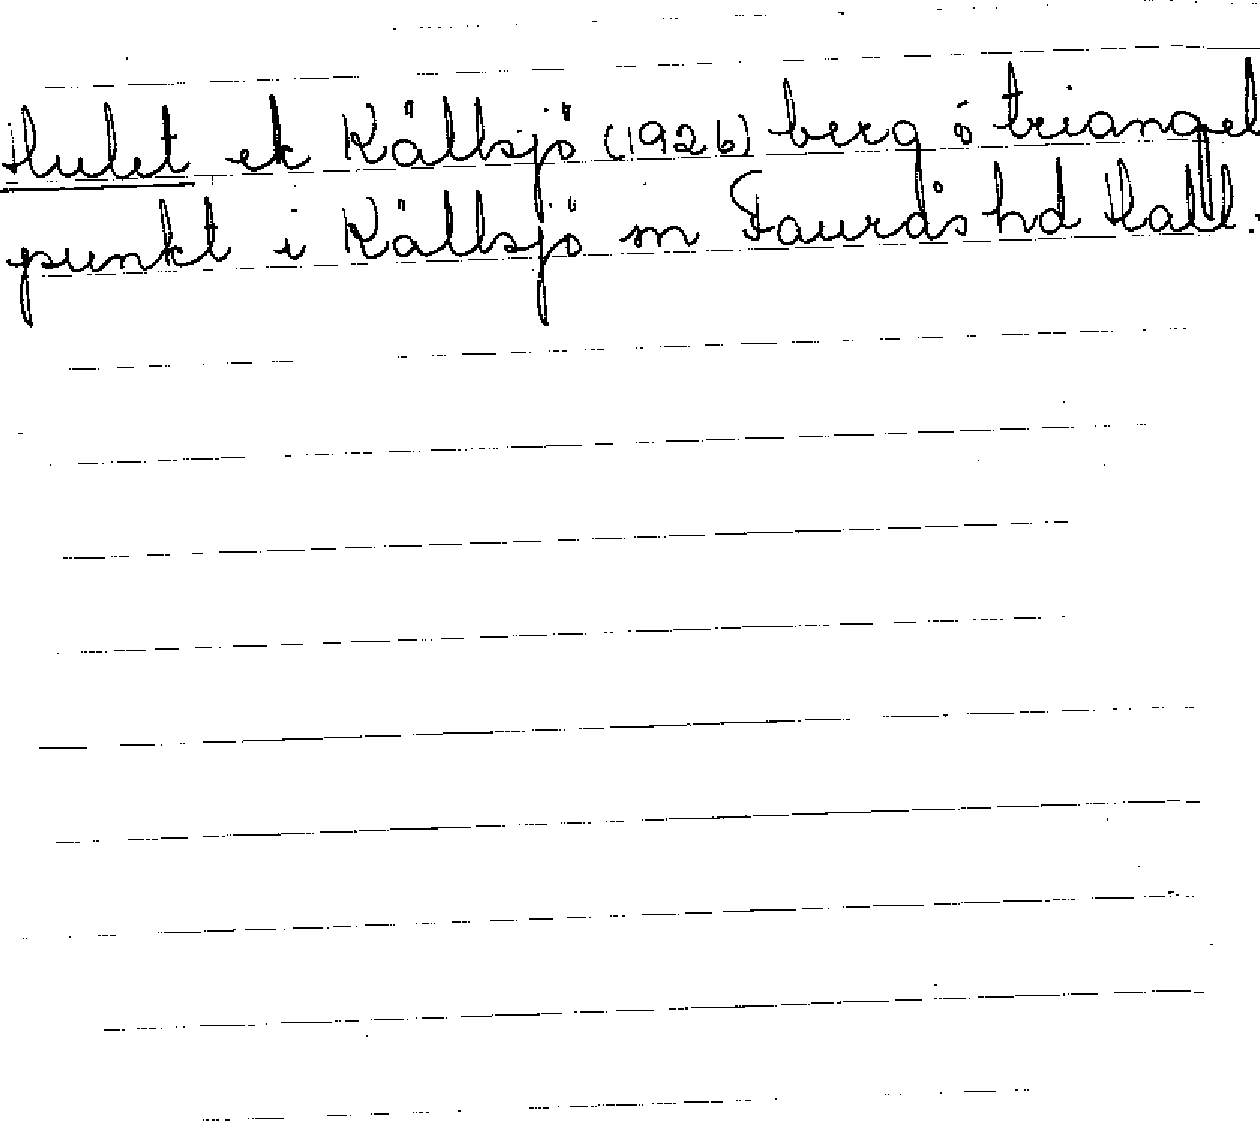 Hulet ek Källsjö (1926) berg ó triangel
punkt i Källsjö sn Faurås hd Hall.